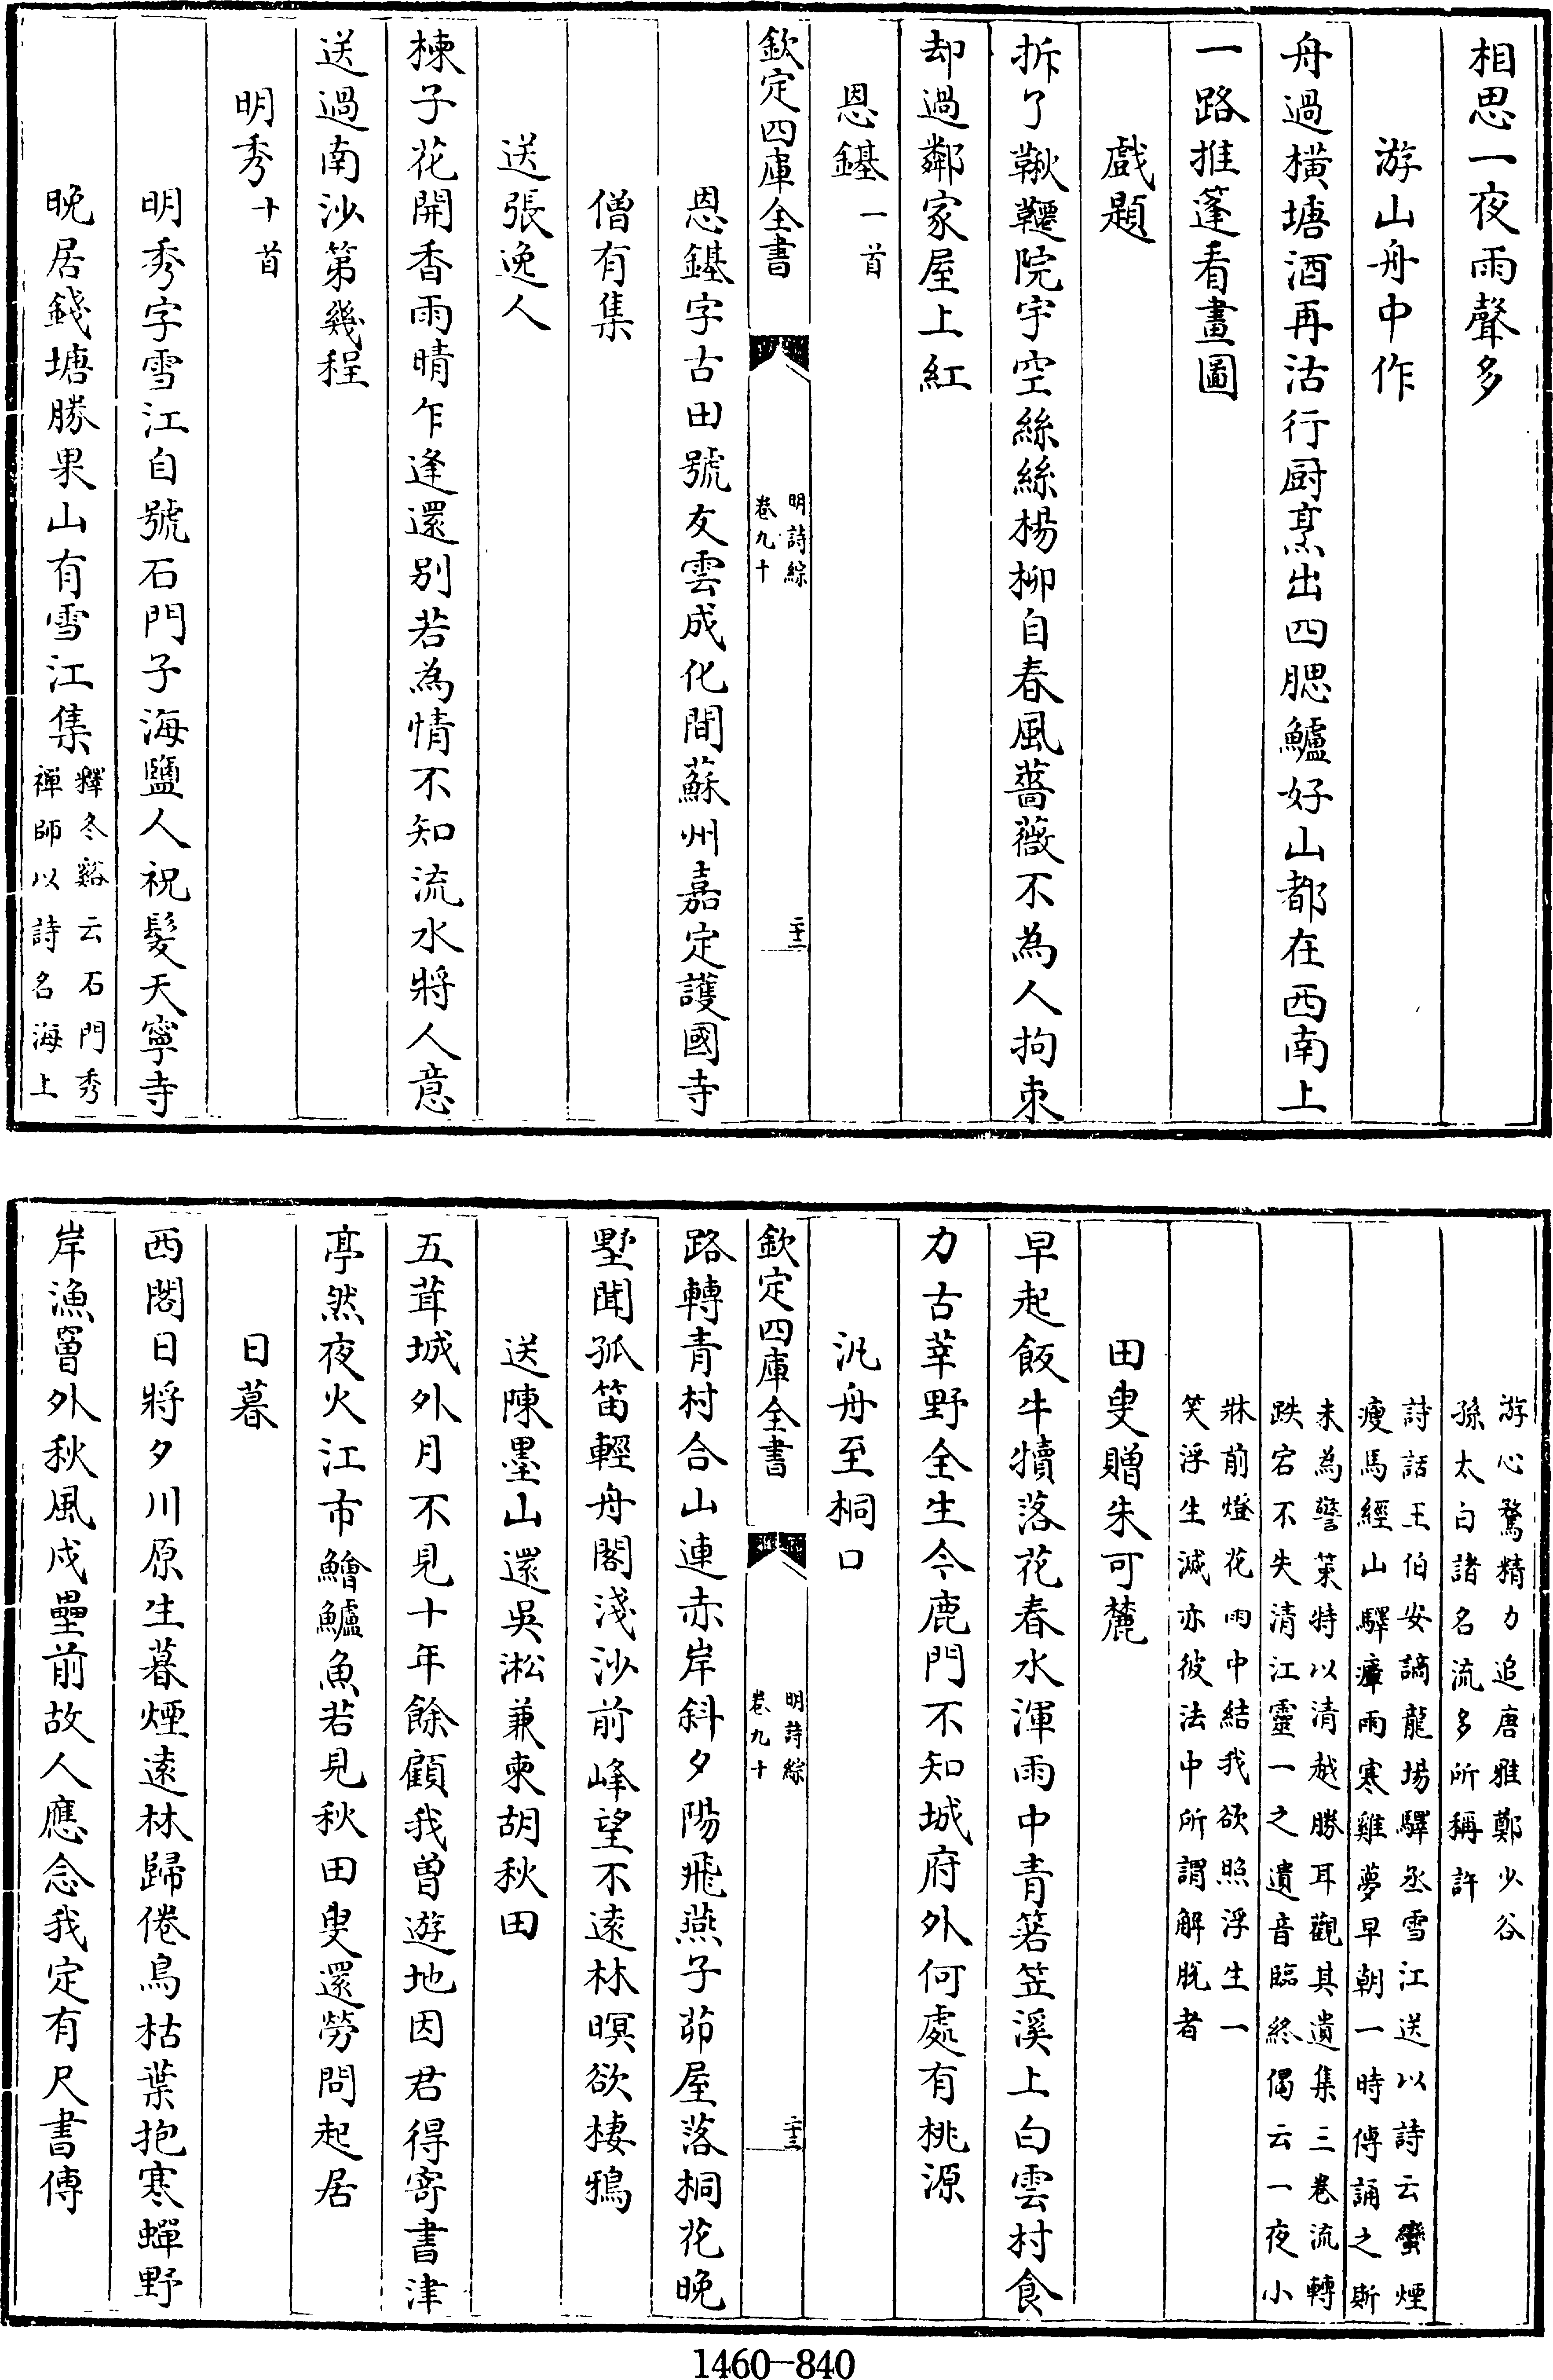 相思一夜雨聲多
游山舟中作
舟過橫塘酒再沽行厨烹出四腮鱸好山都在西南上
一路推篷看畫圖
戲題
拆了鞦韆院宇空絲絲楊柳自春風薔薇不為人拘束
却過鄰家屋上紅
恩鑑一首
欽定四庫全書
明詩綜
卷九十
二十二
恩鑑字古田號友雲成化間蘇州嘉定護國寺
僧有集
送張逸人
楝子花開香雨晴乍逢還别若為情不知流水將人意
送過南沙第幾程
明秀十首
明秀字雪江自號石門子海鹽人祝髮天寧寺
晚居錢塘勝果山有雪江集釋冬谿云石門秀
禪師以詩名海上
游心騖精力追唐雅鄭少谷
孫太白諸名流多所稱許
詩話王伯安謫龍場驛丞雪江送以詩云蠻煙
瘦馬經山驛瘴雨寒雞夢早朝一時傳誦之斯
未為警策特以清越勝耳觀其遺集三卷流轉
跌宕不失清江靈一之遺音臨終偈云一夜小
牀前燈花雨中結我欲照浮生一
笑浮生滅亦彼法中所謂解脱者
田叟贈朱可麓
早起飯牛犢落花春水渾雨中青箬笠溪上白雲村食
力古莘野全生今鹿門不知城府外何處有桃源
汎舟至桐口
欽定四庫全書
明詩綜
卷九十
二十三
路轉青村合山連赤岸斜夕陽飛燕子茆屋落桐花晚
墅聞孤笛輕舟閣淺沙前峰望不遠林暝欲棲鴉
送陳墨山還吳淞兼柬胡秋田
五茸城外月不見十年餘顧我曾遊地因君得寄書津
亭然夜火江市鱠鱸魚若見秋田叟還勞問起居
日暮
西閣日將夕川原生暮煙遠林歸倦鳥枯葉抱寒蟬野
岸漁罾外秋風戍壘前故人應念我定有尺書傳
1460-840